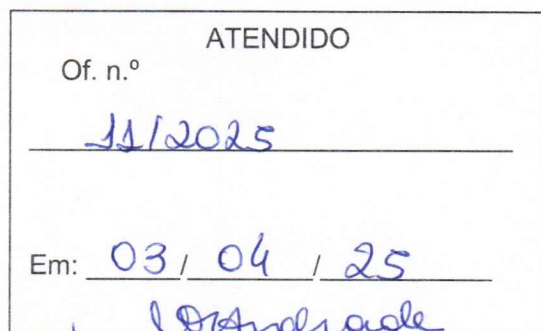 ATENDIDO
Of. n.º
11/2025
Em: 03 / 04 / 25